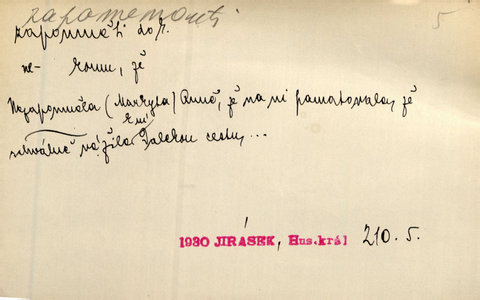 zapomenouti
5
zapomněti dok.
ne- komu, že
Nezapomněla (Markyta) Anně, že na ni pamatovala, že
k ní
schválně vážila dalekou cestu, ...
1930 JIRÁSEK, Hus.král 210. 5.